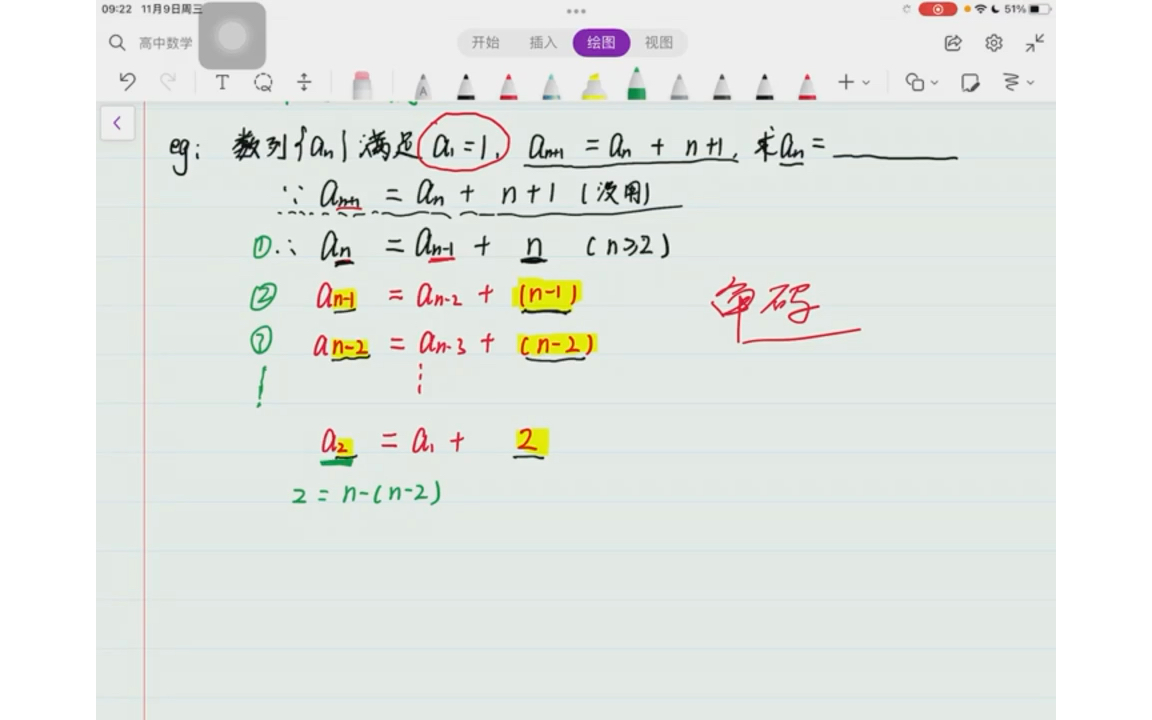 09:22 11月9日周三
51%
高中数学
开始 插入 绘图 视图
eg: 数列{an}满足 a₁=1, aₙ₊₁ = aₙ + n+1, 求aₙ = ______
∵ aₙ₊₁ = aₙ + n+1 (没用)
① ∴ aₙ = aₙ₋₁ + n (n≥2)
② aₙ₋₁ = aₙ₋₂ + (n-1)
③ aₙ₋₂ = aₙ₋₃ + (n-2)
⋮
a₂ = a₁ + 2
2 = n-(n-2)